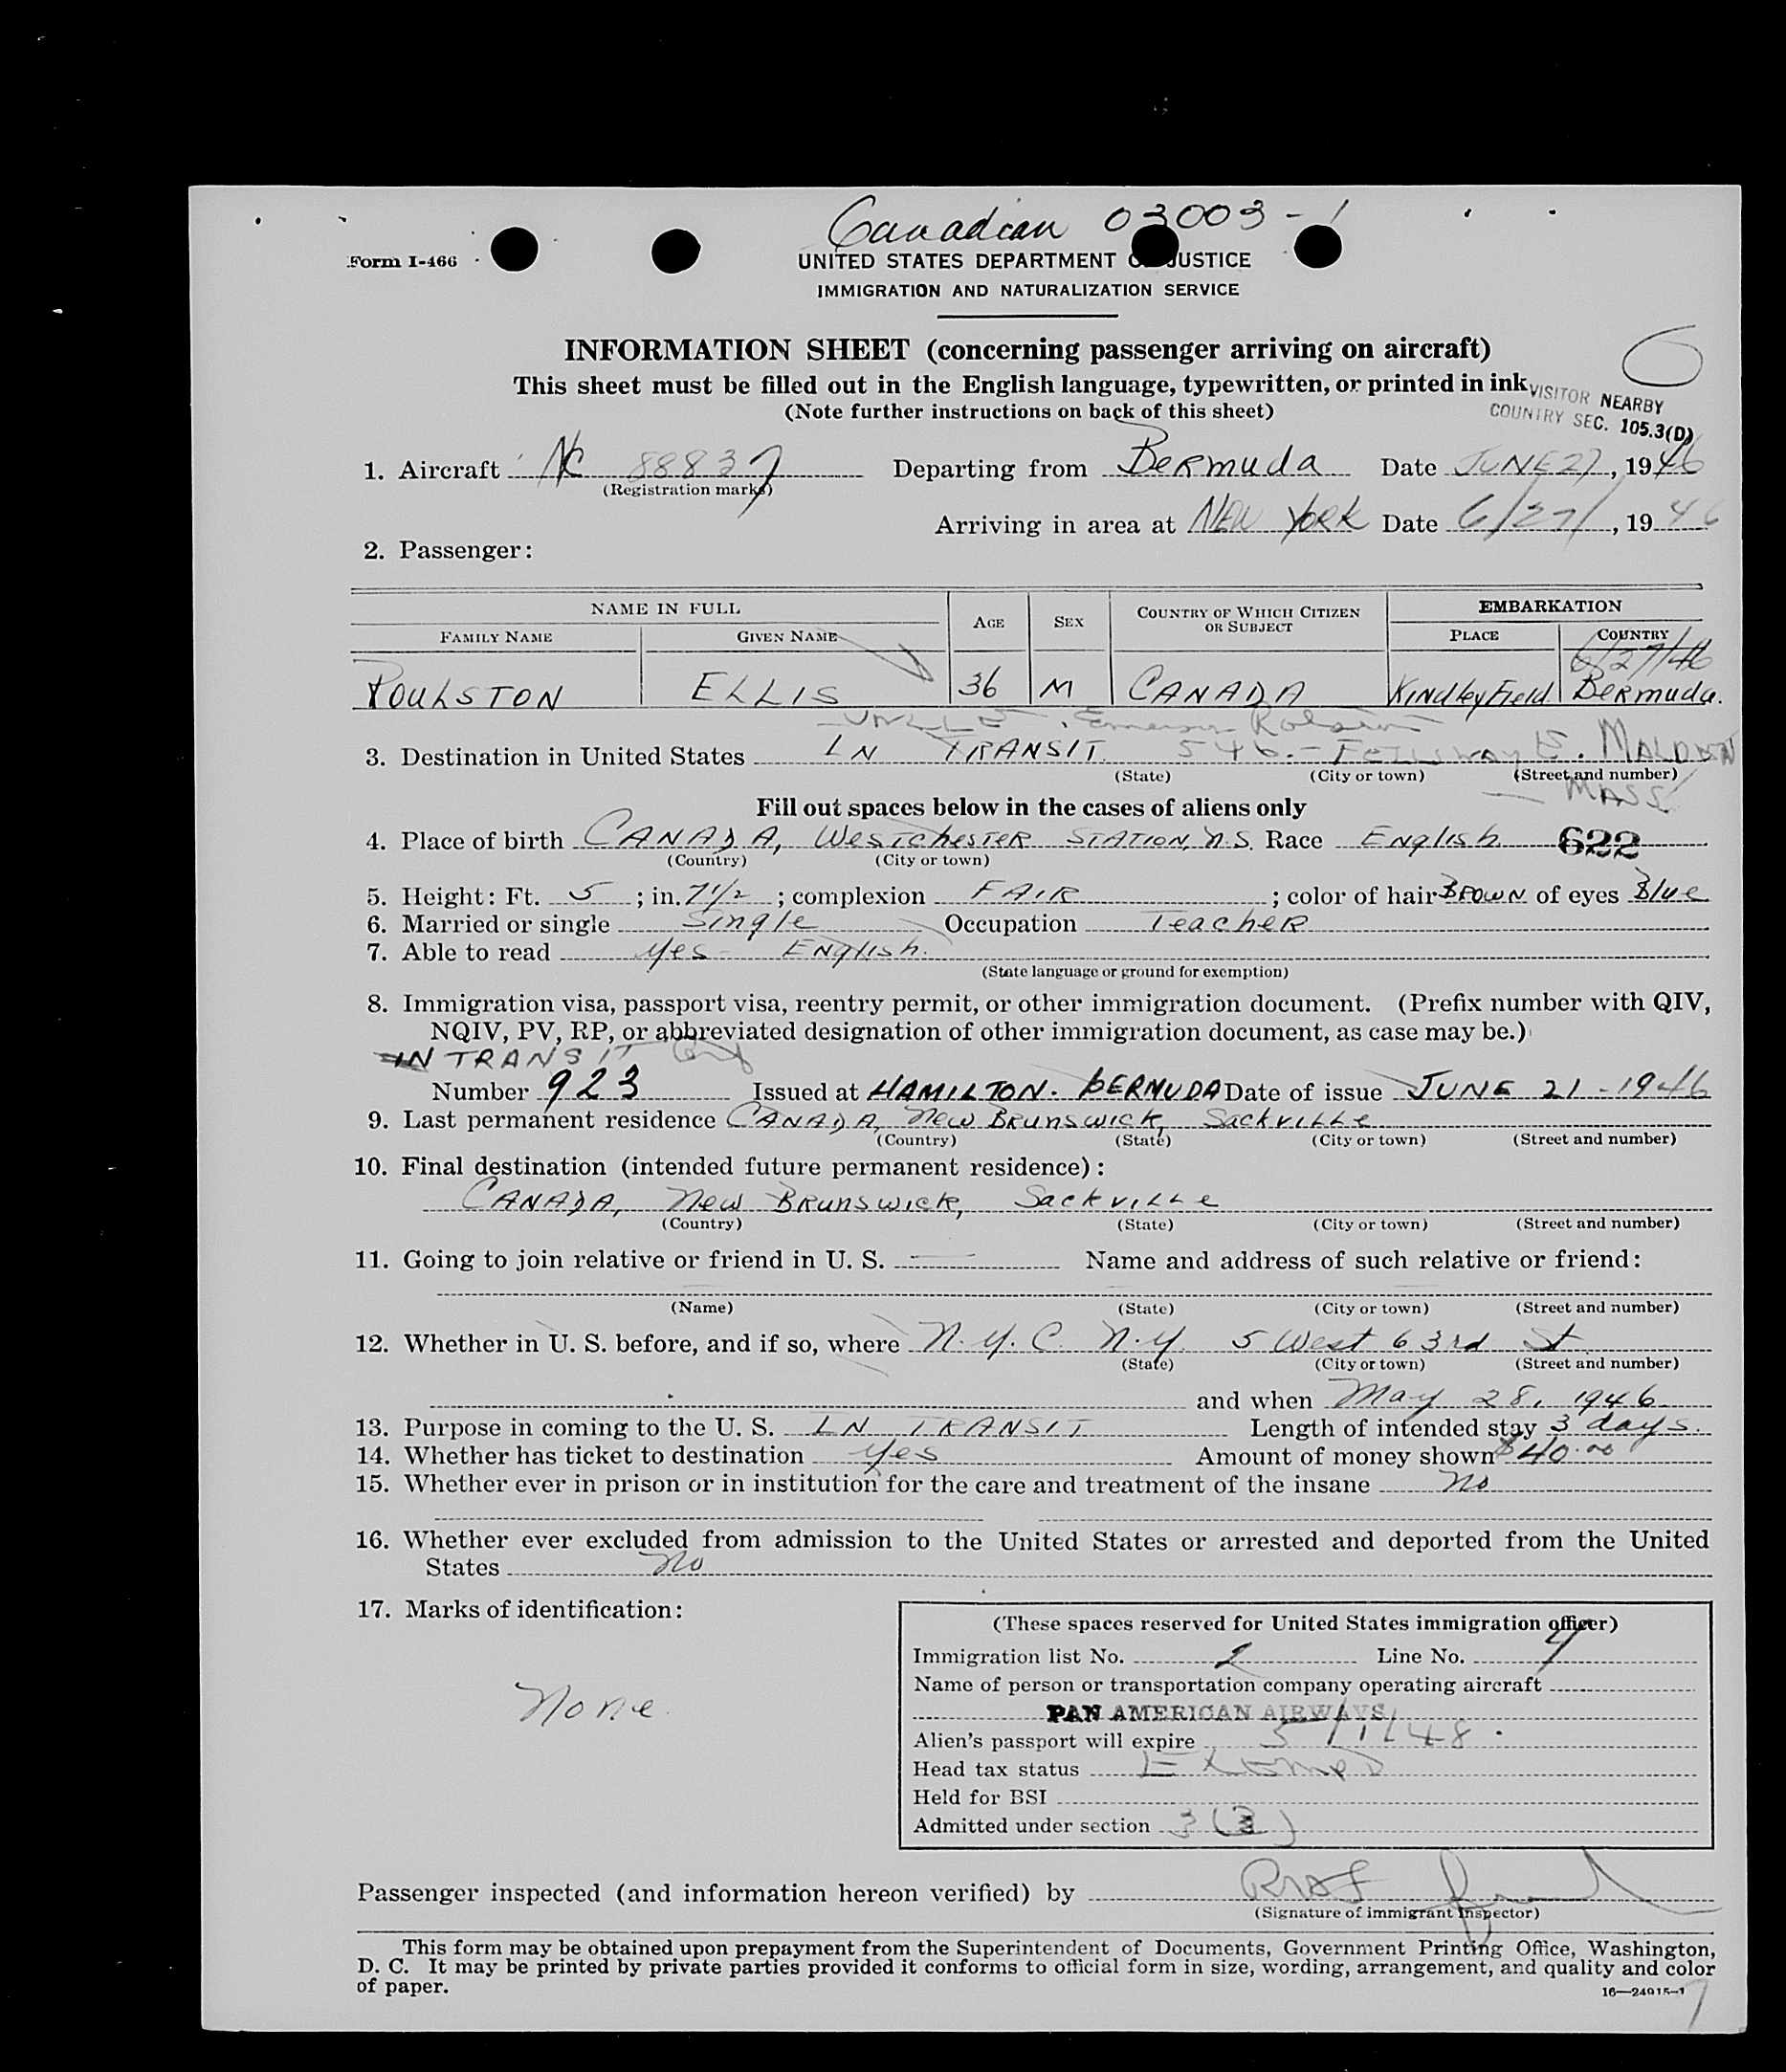 Canadian 03003-1
Form I-466
UNITED STATES DEPARTMENT OF JUSTICE
IMMIGRATION AND NATURALIZATION SERVICE
INFORMATION SHEET (concerning passenger arriving on aircraft)
This sheet must be filled out in the English language, typewritten, or printed in ink
(Note further instructions on back of this sheet)
VISITOR NEARBY
COUNTRY SEC. 105.3(D)
1. Aircraft NC 88837 Departing from Bermuda Date JUNE 27, 1946
(Registration marks)
Arriving in area at NEW YORK Date 6/27/, 1946
2. Passenger:
NAME IN FULL AGE SEX COUNTRY OF WHICH CITIZEN OR SUBJECT EMBARKATION
FAMILY NAME GIVEN NAME PLACE COUNTRY
6/27/46
POULSTON ELLIS 36 M CANADA Kindley Field Bermuda.
UNCLE
3. Destination in United States IN TRANSIT 546 - FELLSWAY E. MALDEN
(State) (City or town) (Street and number)
MASS
Fill out spaces below in the cases of aliens only
4. Place of birth CANADA, WESTCHESTER STATION N.S. Race English 622
(Country) (City or town)
5. Height: Ft. 5; in. 7 1/2; complexion FAIR; color of hair BROWN of eyes Blue
6. Married or single Single Occupation Teacher
7. Able to read Yes - English.
(State language or ground for exemption)
8. Immigration visa, passport visa, reentry permit, or other immigration document. (Prefix number with QIV,
NQIV, PV, RP, or abbreviated designation of other immigration document, as case may be.)
IN TRANSIT
Number 923 Issued at HAMILTON. BERMUDA Date of issue JUNE 21-1946
9. Last permanent residence CANADA, New Brunswick, Sackville
(Country) (State) (City or town) (Street and number)
10. Final destination (intended future permanent residence):
CANADA, New Brunswick, Sackville
(Country) (State) (City or town) (Street and number)
11. Going to join relative or friend in U. S. Name and address of such relative or friend:
(Name) (State) (City or town) (Street and number)
12. Whether in U. S. before, and if so, where N.Y.C. N.Y. 5 West 63rd St
(State) (City or town) (Street and number)
and when May 28, 1946
13. Purpose in coming to the U. S. IN TRANSIT Length of intended stay 3 days.
14. Whether has ticket to destination Yes Amount of money shown $40.00
15. Whether ever in prison or in institution for the care and treatment of the insane No
16. Whether ever excluded from admission to the United States or arrested and deported from the United
States No
17. Marks of identification:
None
(These spaces reserved for United States immigration officer)
Immigration list No. 2 Line No. 9
Name of person or transportation company operating aircraft
PAN AMERICAN AIRWAYS
Alien's passport will expire 5/1/48
Head tax status Exempt
Held for BSI
Admitted under section 3(3)
Passenger inspected (and information hereon verified) by
(Signature of immigrant inspector)
This form may be obtained upon prepayment from the Superintendent of Documents, Government Printing Office, Washington,
D. C. It may be printed by private parties provided it conforms to official form in size, wording, arrangement, and quality and color
of paper.
16—24915-1